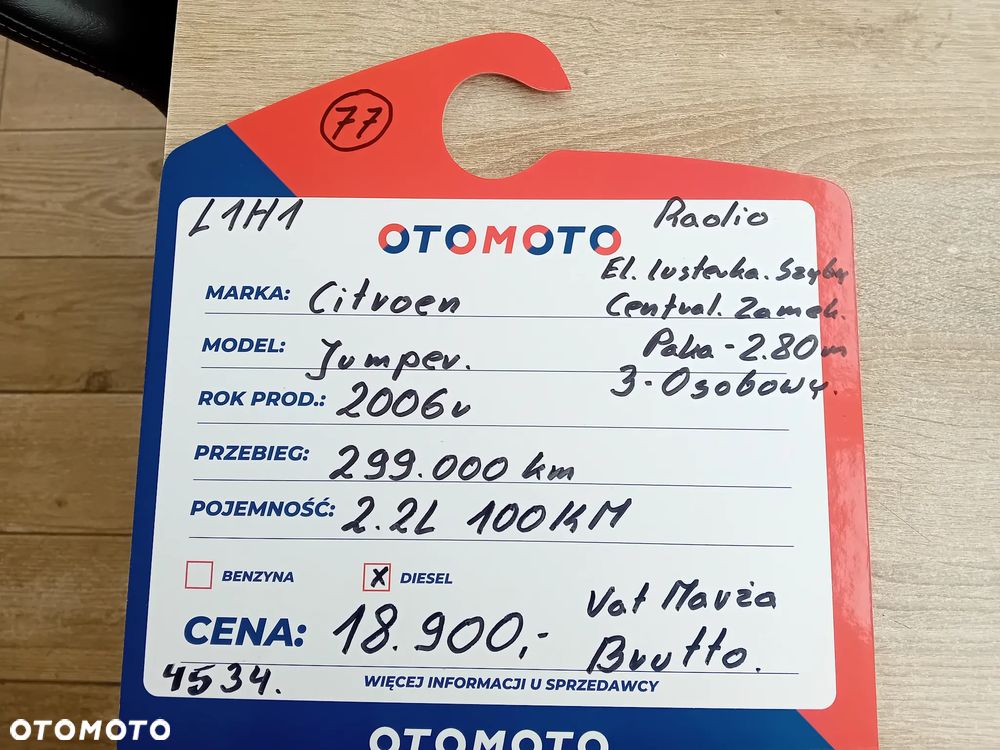 77
L1H1
Radio
OTOMOTO
El. lusterka. Szyby
MARKA: Citroen
Central. Zamek.
MODEL: Jumper.
Paka - 2.80m
3-Osobowy.
ROK PROD.: 2006r
PRZEBIEG: 299.000 km
POJEMNOŚĆ: 2.2L 100KM
BENZYNA
X DIESEL
CENA: 18.900,-
Vat Marża
Brutto.
4534.
WIĘCEJ INFORMACJI U SPRZEDAWCY
OTOMOTO
OTOMOTO